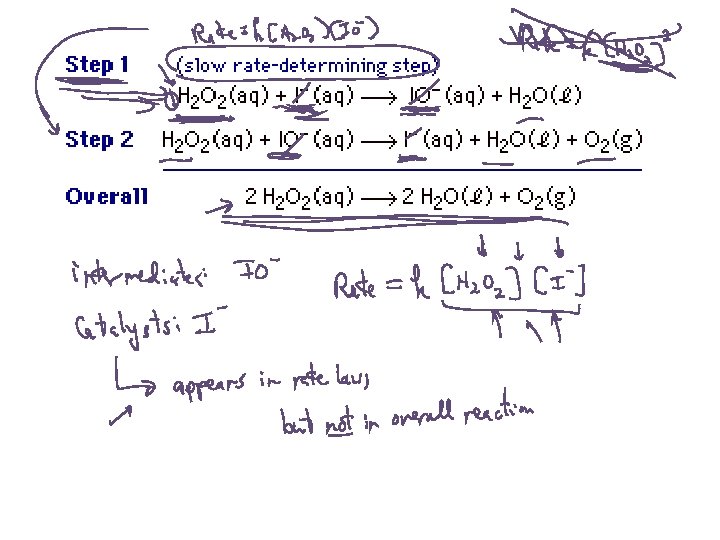 Rate = k[H₂O₂][IO⁻]
Rate = k[H₂O₂]²
Step 1 (slow rate-determining step)
H₂O₂(aq) + I⁻(aq) ⟶ IO⁻(aq) + H₂O(ℓ)
Step 2 H₂O₂(aq) + IO⁻(aq) ⟶ I⁻(aq) + H₂O(ℓ) + O₂(g)
Overall 2 H₂O₂(aq) ⟶ 2 H₂O(ℓ) + O₂(g)
intermediates: IO⁻
Rate = k [H₂O₂] [I⁻]
Catalysts: I⁻
appears in rate law,
but not in overall reaction